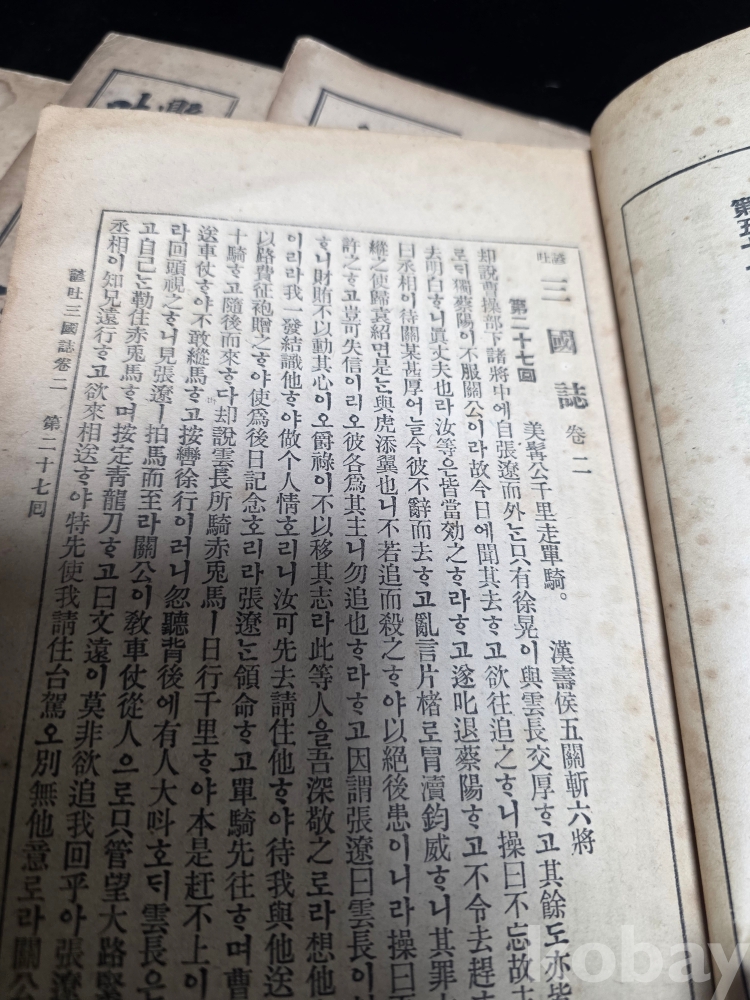 第五十
諺吐 三國誌 卷二
第二十七回 美髯公千里走單騎。 漢壽侯五關斬六將
却說曹操部下諸將中에自張遼而外는只有徐晃이與雲長交厚ᄒᆞ고其餘도亦皆
로ᄃᆡ獨蔡陽이不服關公이라故今日에聞其去ᄒᆞ고欲往追之ᄒᆞ니操曰不忘故主
去明白ᄒᆞ니眞丈夫也라汝等은皆當効之ᄒᆞ라ᄒᆞ고遂叱退蔡陽ᄒᆞ고不令去趕
曰丞相이待關某甚厚어늘今彼不辭而去ᄒᆞ고亂言片楮로冒瀆鈞威ᄒᆞ니其罪
縱之使歸袁紹면是는與虎添翼也니不若追而殺之ᄒᆞ야以絕後患이니라操曰
許之ᄒᆞ고豈可失信이리오彼各爲其主니勿追也ᄒᆞ라ᄒᆞ고因謂張遼曰雲長이
ᄒᆞ니財賄不以動其心이오爵祿이不以移其志라此等人을吾深敬之로라想他
이리라我一發結識他ᄒᆞ야做个人情호리니汝可先去請住他ᄒᆞ야待我與他送
以路費征袍贈之ᄒᆞ야使爲後日記念호리라張遼는領命ᄒᆞ고單騎先往ᄒᆞ며曹
十騎ᄒᆞ고隨後而來ᄒᆞ다却說雲長所騎赤兎馬ㅣ日行千里ᄒᆞ야本是赶不上이
送車仗ᄒᆞ야不敢縱馬ᄒᆞ고按轡徐行이러니忽聽背後에有人大呌호ᄃᆡ雲長은
라回頭視之ᄒᆞ니見張遼ㅣ拍馬而至라關公이敎車仗從人으로只管望大路緊
고自己는勒住赤兎馬ᄒᆞ며按定靑龍刀ᄒᆞ고曰文遠이莫非欲追我回乎아張遼
丞相이知兄遠行ᄒᆞ고欲來相送ᄒᆞ야特先使我請住台駕오別無他意로라關公
諺吐三國誌卷二 第二十七回
kobay